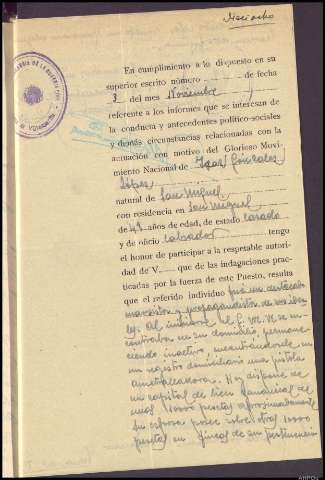 En cumplimiento a lo dispuesto en su
superior escrito número ........ de fecha
3 del mes Noviembre
referente a los informes que se interesan de
la conducta y antecedentes político-sociales
y demás circunstancias relacionadas con la
actuación con motivo del Glorioso Movi-
miento Nacional de Gonzalez
López
natural de San Miguel
con residencia en San Miguel
de 49 años de edad, de estado casado
y de oficio labrador tengo
el honor de participar a la respetable autori-
dad de V. que de las indagaciones prac-
ticadas por la fuerza de este Puesto, resulta
que el referido individuo fué un destacado
marxista y propagandista de sus idea
les. Al iniciarse el G. M. N. se en-
contraba en su domicilio, permane-
ciendo inactivo, encontrándosele en
un registro domiciliario una pistola
ametralladora.
un capital de bien gananciales de
unas 10000 pesetas aproximadamente
su esposa posee sobre otras 10000
pesetas en fincas de su pertenencia